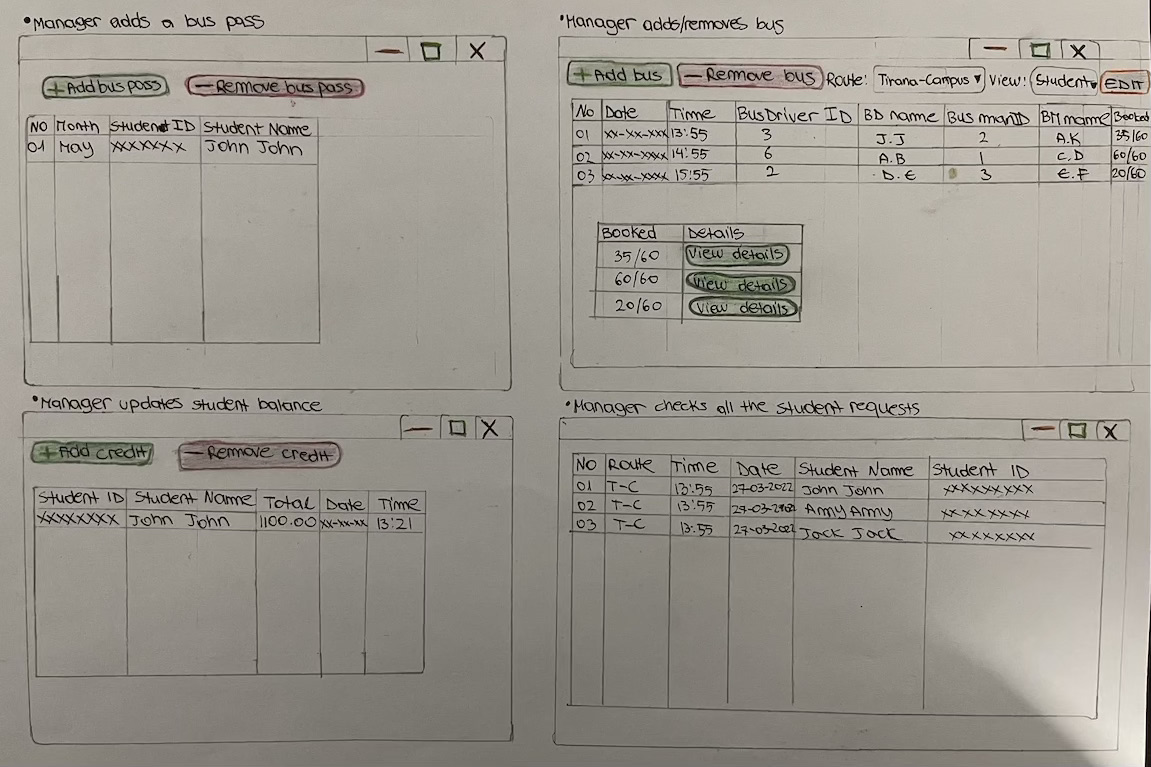 •Manager adds a bus pass
— □ X
+ Add bus pass — Remove bus pass
No Month Student ID Student Name
01 May xxxxxxx John John
•Manager adds/removes bus
— □ X
+ Add bus — Remove bus Route: Tirana-Campus ▾ View: Student ▾ EDIT
No Date Time Bus Driver ID BD name Bus man ID BM name Booked
01 xx-xx-xxxx 13:55 3 J.J 2 A.K 35/60
02 xx-xx-xxxx 14:55 6 A.B 1 C.D 60/60
03 xx-xx-xxxx 15:55 2 D.E 3 E.F 20/60
Booked Details
35/60 View details
60/60 View details
20/60 View details
•Manager updates student balance
— □ X
+ Add credit — Remove credit
Student ID Student Name Total Date Time
xxxxxxxx John John 1100.00 xx-xx-xx 13:21
•Manager checks all the student requests
— □ X
No Route Time Date Student Name Student ID
01 T-C 13:55 27-03-2022 John John xxxxxxxxx
02 T-C 13:55 27-03-2022 Amy Amy xxxxxxxx
03 T-C 13:55 27-03-2022 Jack Jack xxxxxxxx